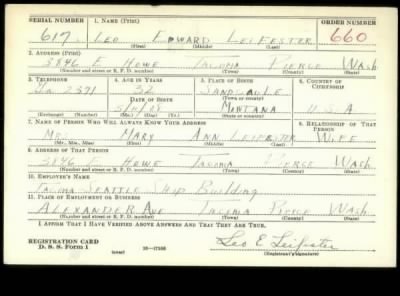 SERIAL NUMBER 1. NAME (Print) ORDER NUMBER
617. LEO EDWARD LEIFESTER 660
(First) (Middle) (Last)
2. ADDRESS (Print)
3846 E HOWE TACOMA PIERCE WASH
(Number and street or R. F. D. number) (Town) (County) (State)
3. TELEPHONE 4. AGE IN YEARS 5. PLACE OF BIRTH 6. COUNTRY OF CITIZENSHIP
2371 32
DATE OF BIRTH (Town or county)
MONTANA U.S.A
(Exchange) (Number) (Mo.) (Day) (Yr.) (State or country)
7. NAME OF PERSON WHO WILL ALWAYS KNOW YOUR ADDRESS 8. RELATIONSHIP OF THAT PERSON
MRS MARY ANN LEIFESTER WIFE
(Mr., Mrs., Miss) (First) (Middle) (Last)
9. ADDRESS OF THAT PERSON
3846 E HOWE TACOMA PIERCE WASH
(Number and street or R. F. D. number) (Town) (County) (State)
10. EMPLOYER'S NAME
TACOMA SEATTLE SHIP BUILDING
11. PLACE OF EMPLOYMENT OR BUSINESS
ALEXANDER AVE TACOMA PIERCE WASH
(Number and street or R. F. D. number) (Town) (County) (State)
I AFFIRM THAT I HAVE VERIFIED ABOVE ANSWERS AND THAT THEY ARE TRUE.
REGISTRATION CARD
D. S. S. Form 1 (over) 16—17105 Leo E. Leifester
(Registrant's signature)